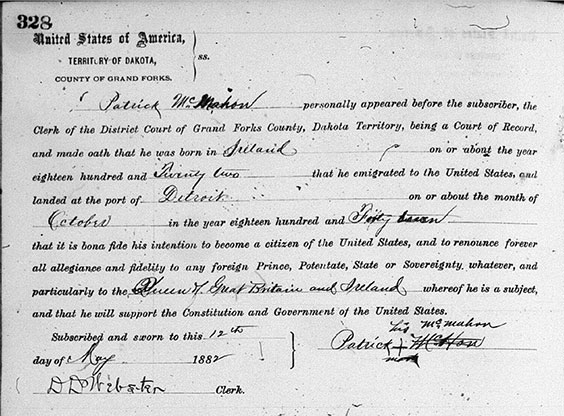 328
United States of America,
TERRITORY OF DAKOTA,
COUNTY OF GRAND FORKS.
ss.
Patrick McMahon personally appeared before the subscriber, the
Clerk of the District Court of Grand Forks County, Dakota Territory, being a Court of Record,
and made oath that he was born in Ireland on or about the year
eighteen hundred and Twenty two that he emigrated to the United States, and
landed at the port of Detroit on or about the month of
October in the year eighteen hundred and
that it is bona fide his intention to become a citizen of the United States, and to renounce forever
all allegiance and fidelity to any foreign Prince, Potentate, State or Sovereignty whatever, and
particularly to the Queen of Great Britain and Ireland whereof he is a subject,
and that he will support the Constitution and Government of the United States.
Subscribed and sworn to this 12th
day of May 1882
his McMahon
Patrick +
mark
D D Webster Clerk.